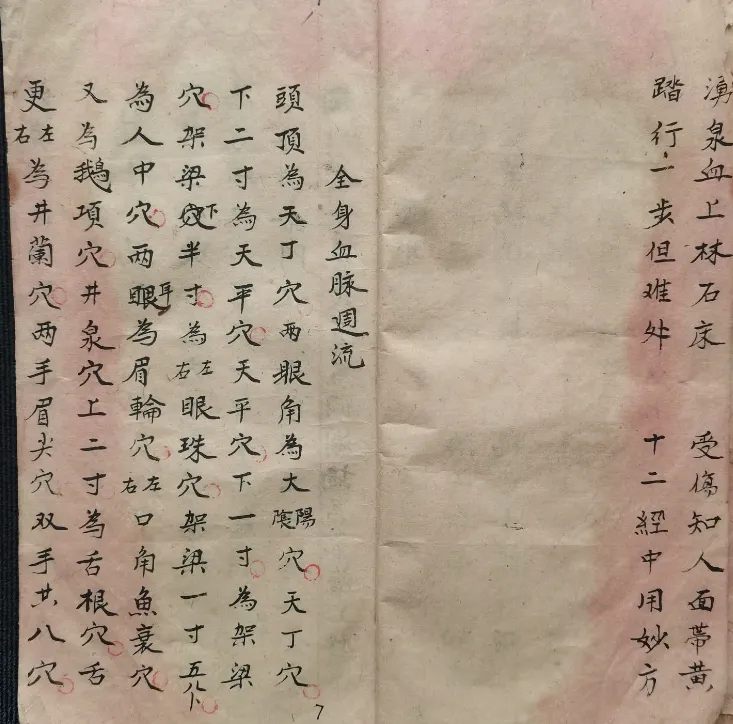 湧泉血上林石床 受傷知人面蒂黄
踏行一步但难外 十二經中用妙方
全身血脉週流
頭頂為天丁穴两眼角為大陽陰穴天丁穴
下二寸為天平穴天平穴下一寸為架梁
穴架梁穴下半寸為左右眼珠穴架梁一寸五分下
為人中穴两眼耳為眉輪穴左右口角魚衰穴
又為鵝項穴井泉穴上二寸為舌根穴舌
更左右為井蘭穴两手眉尖穴双手共八穴
7